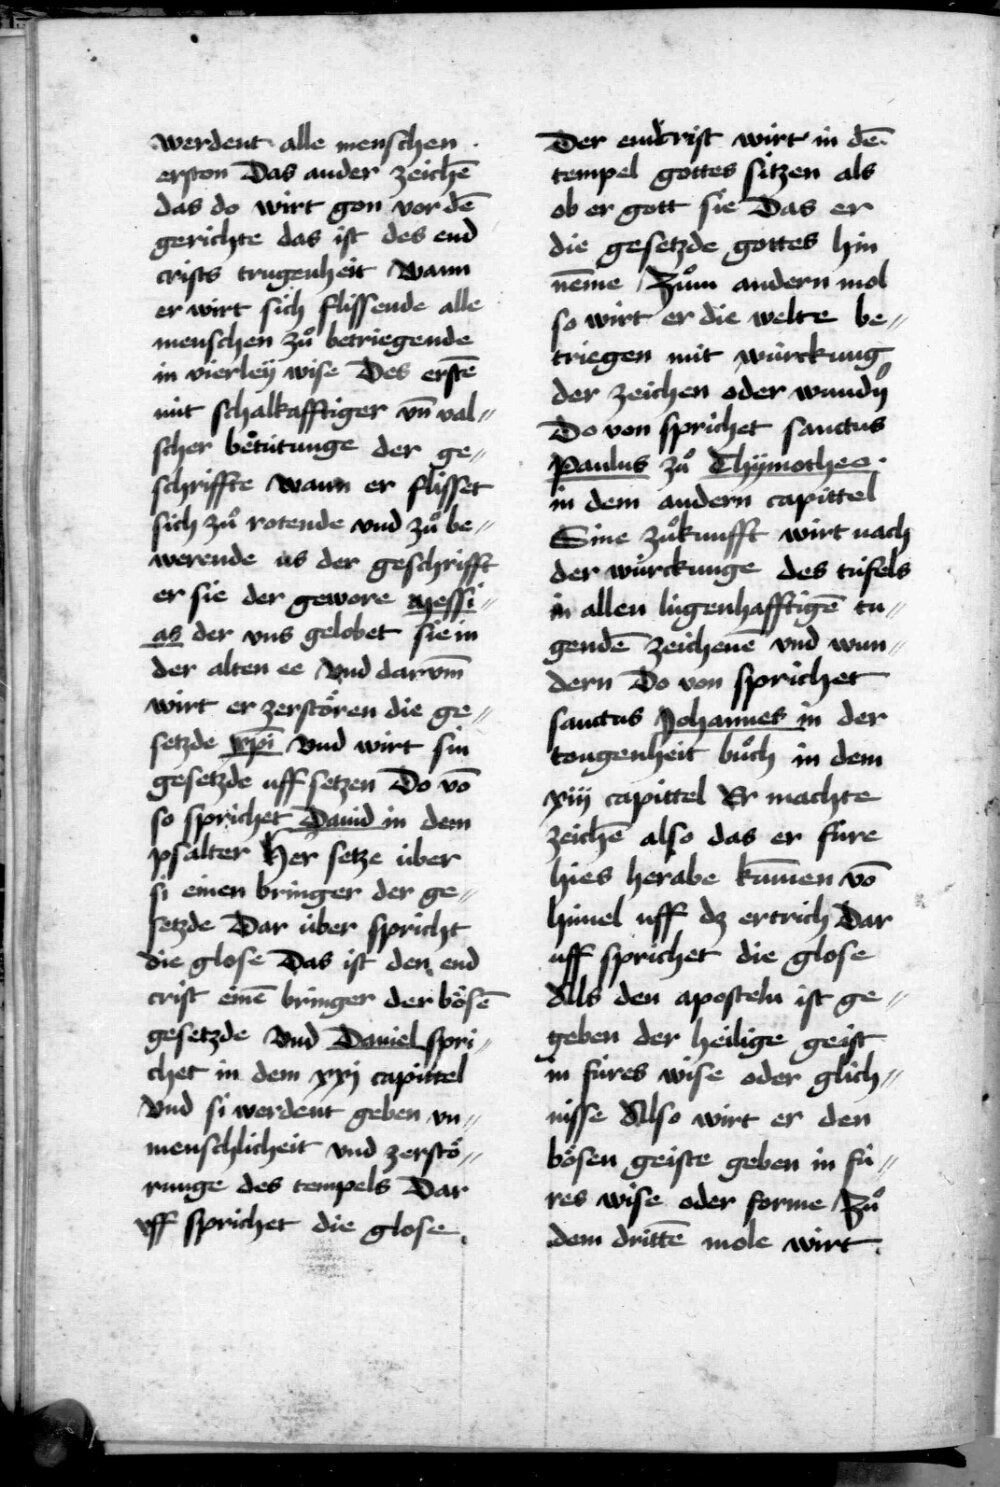 werdent alle menschen
erston Das ander zeichē
das do wirt gon vor dē
gerichte das ist des end
crists trugenheit Wann
er wirt sich flissende alle
menschen zuͦ betriegende
in vierleÿ wise Des erstē
mit schalkafftiger vn̄ val〃
scher betútunge der ge〃
schriffte wann er flisset
sich zuͦ rotende vnd zuͦ be〃
werende us der geschrifft
er sie der gewore Messi〃
as der vns gelobet sie in
der alten ee Vnd darvm̄
wirt er zerstören die ge〃
setzde xp̄i Vnd wirt sin
gesetzde uff setzen Do vō
so sprichet Dauid in dem
psalter Her setze über
si einen bringer der ge〃
setzde Dar über spricht
die glose Das ist den end
crist einē bringer der bösē
gesetzde Vnd Daniel spri〃
chet in dem xxj capittel
Vnd si werdent geben vn〃
menschlicheit vnd zerstö〃
runge des tempels Dar
vff sprichet die glose
Der endcrist wirt in dē
tempel gottes sitzen als
ob er gott sie Das er
die gesetzde gottes hin
nēme Zuͦm andern mol
so wirt er die welte be〃
triegen mit würckung
der zeichen oder wundn̄
Do von sprichet sanctus
Paulus zuͦ Thÿmotheo
in dem andern capittel
Sine zuͦkunfft wirt nach
der würckunge des tüfels
in allen lügenhafftigē tu〃
gendē zeichenē vnd wun〃
dern Do von sprichet
sanctus Johannes in der
tougenheit buͦch in dem
xiij capittel Er machte
zeichē also das er füre
hies herabe kūmen vō
himel uff dz ertrich Dar
uff sprichet die glose
Als den aposteln ist ge〃
geben der heilige geist
in füres wise oder glich〃
nisse Also wirt er den
bösen geiste geben in fü〃
res wise oder forme Zuͦ
dem drittē mole wirt